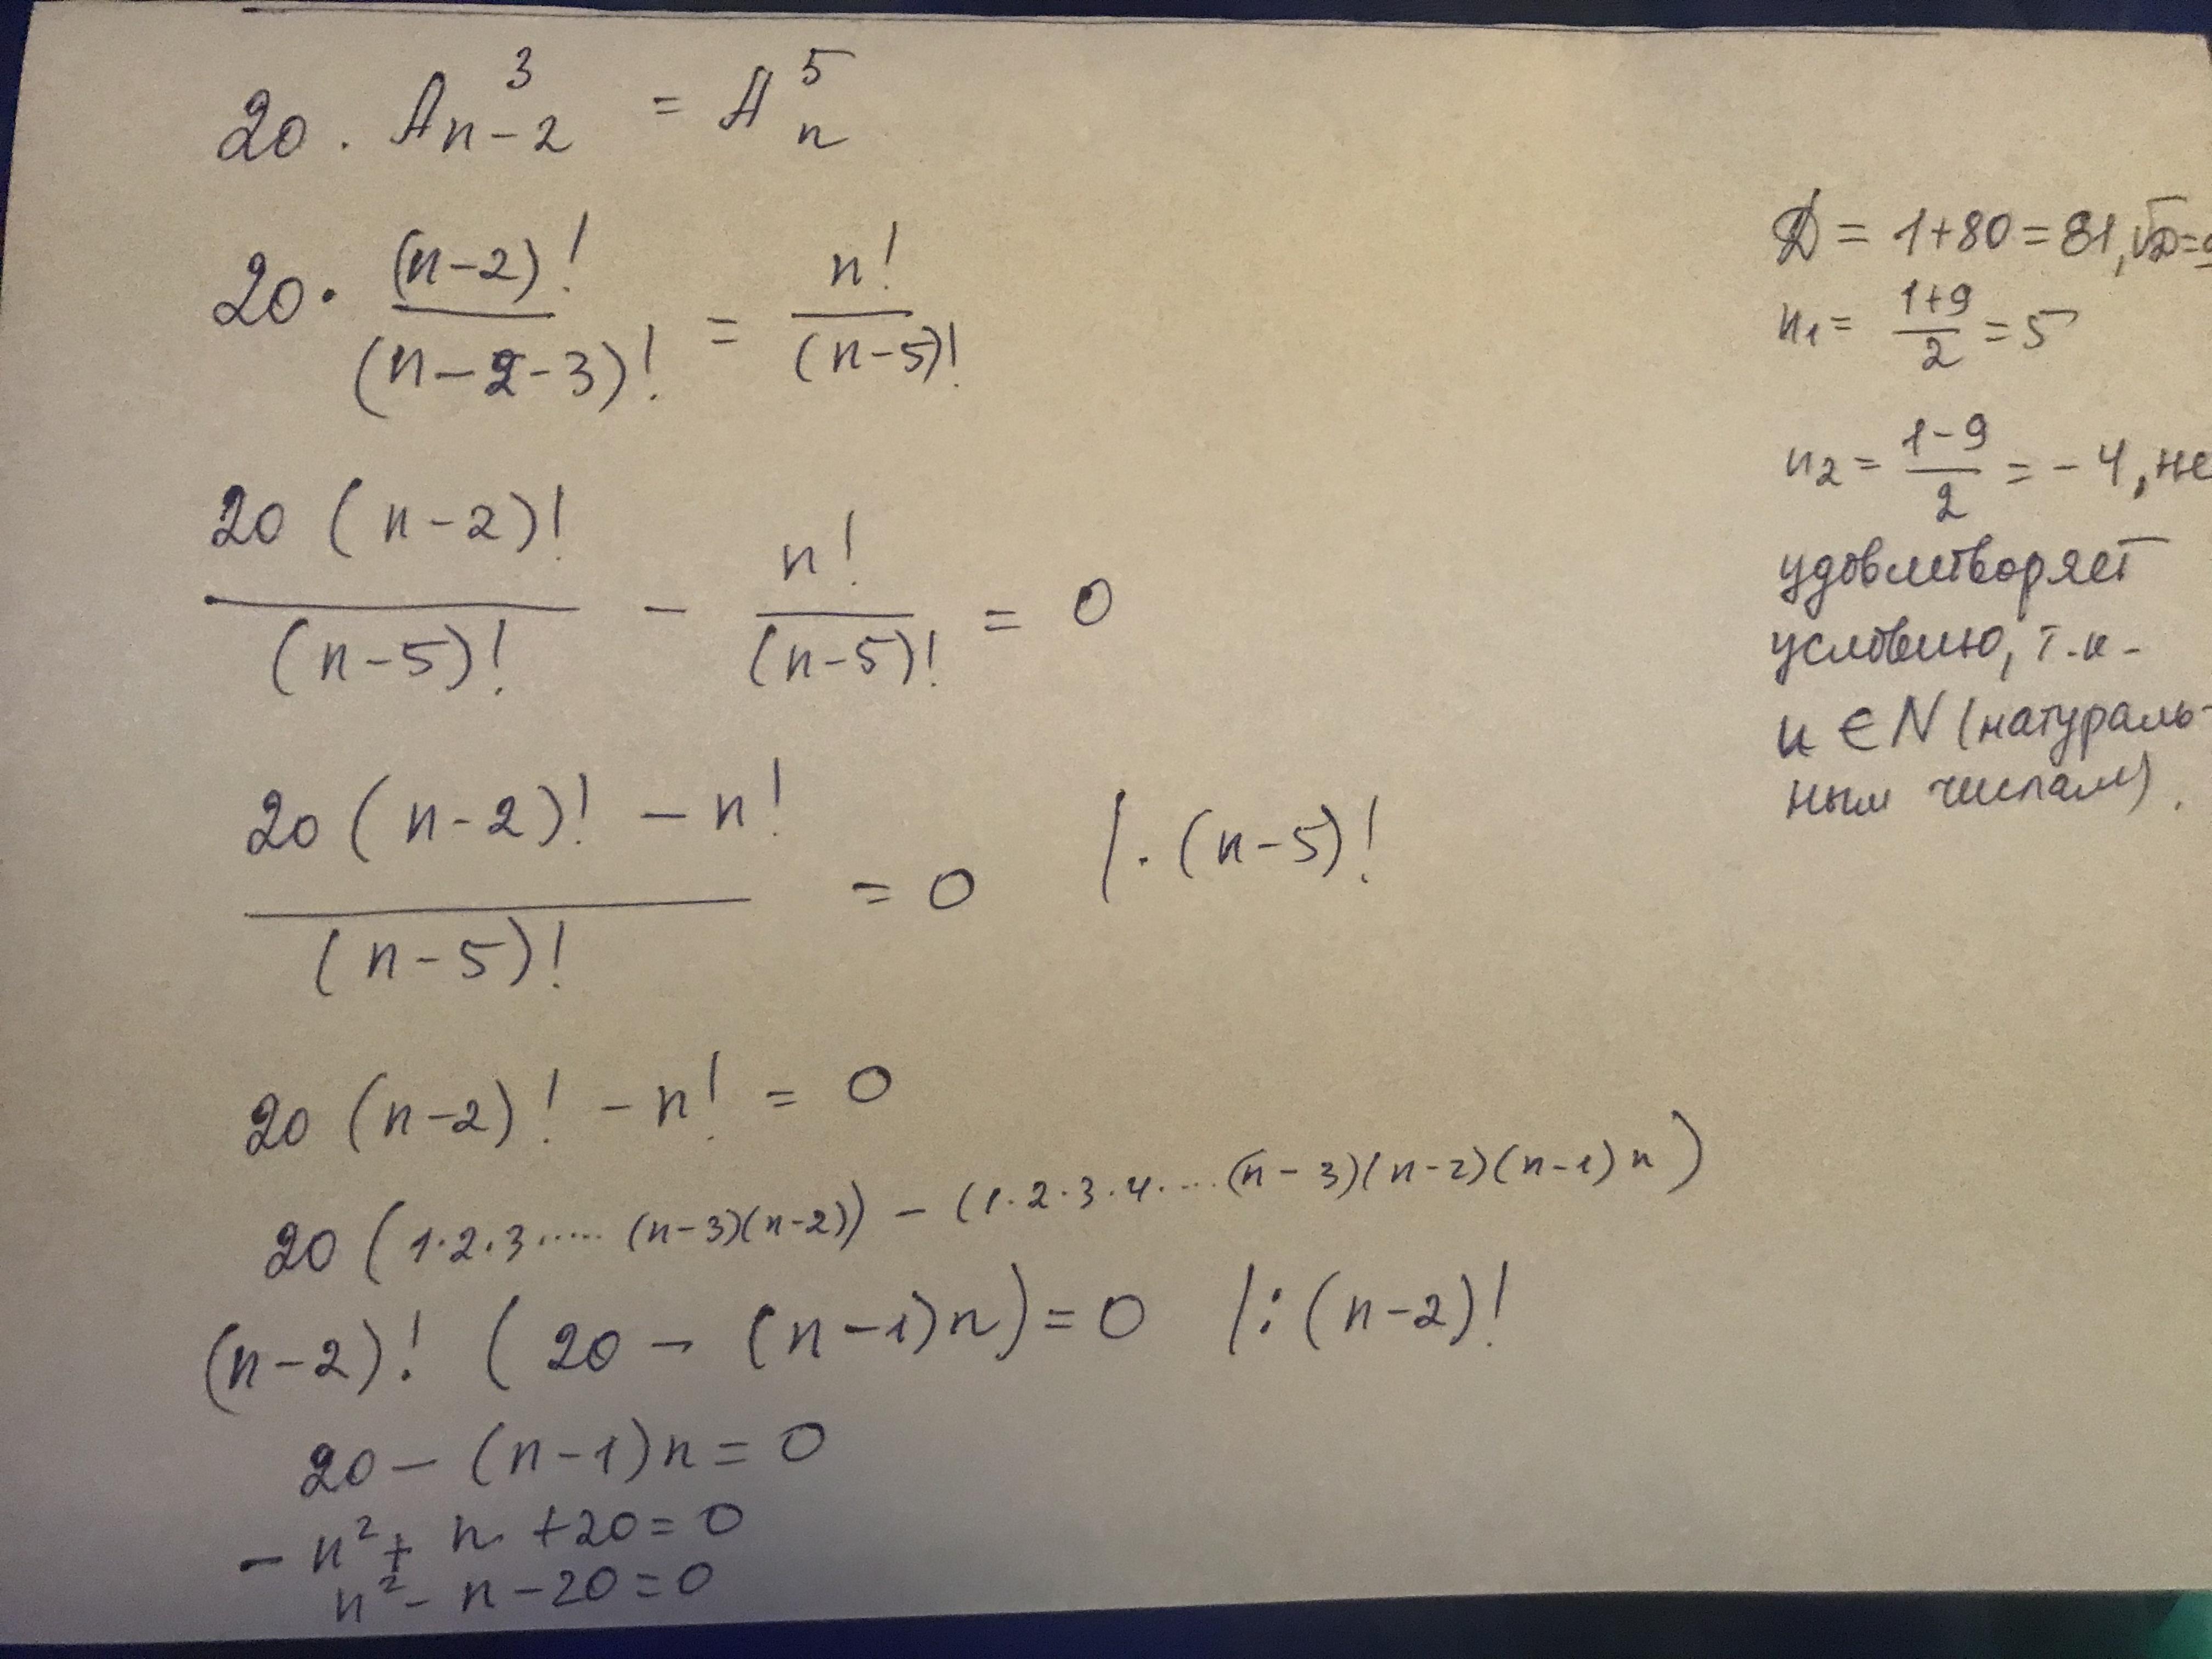 20 · A³ₙ₋₂ = A⁵ₙ
20 · (n-2)! / (n-2-3)! = n! / (n-5)!
20 (n-2)! / (n-5)! - n! / (n-5)! = 0
20 (n-2)! - n! / (n-5)! = 0 | · (n-5)!
20 (n-2)! - n! = 0
20 (1·2·3····· (n-3)(n-2)) - (1·2·3·4·.... (n-3)(n-2)(n-1)n)
(n-2)! (20 - (n-1)n) = 0 | : (n-2)!
20 - (n-1)n = 0
- n² + n + 20 = 0
n² - n - 20 = 0
D = 1+80 = 81, √D = 9
n₁ = 1+9 / 2 = 5
n₂ = 1-9 / 2 = -4, не
удовлетворяет
условию, т.к.
n ∈ N (натураль-
ным числам).